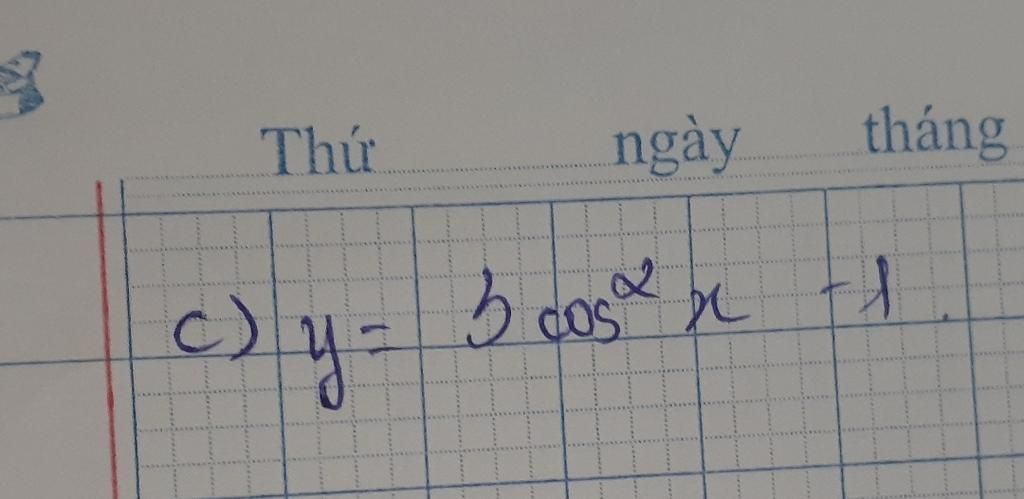 Thứ ngày tháng
c) y = 3 cos² x - 1.